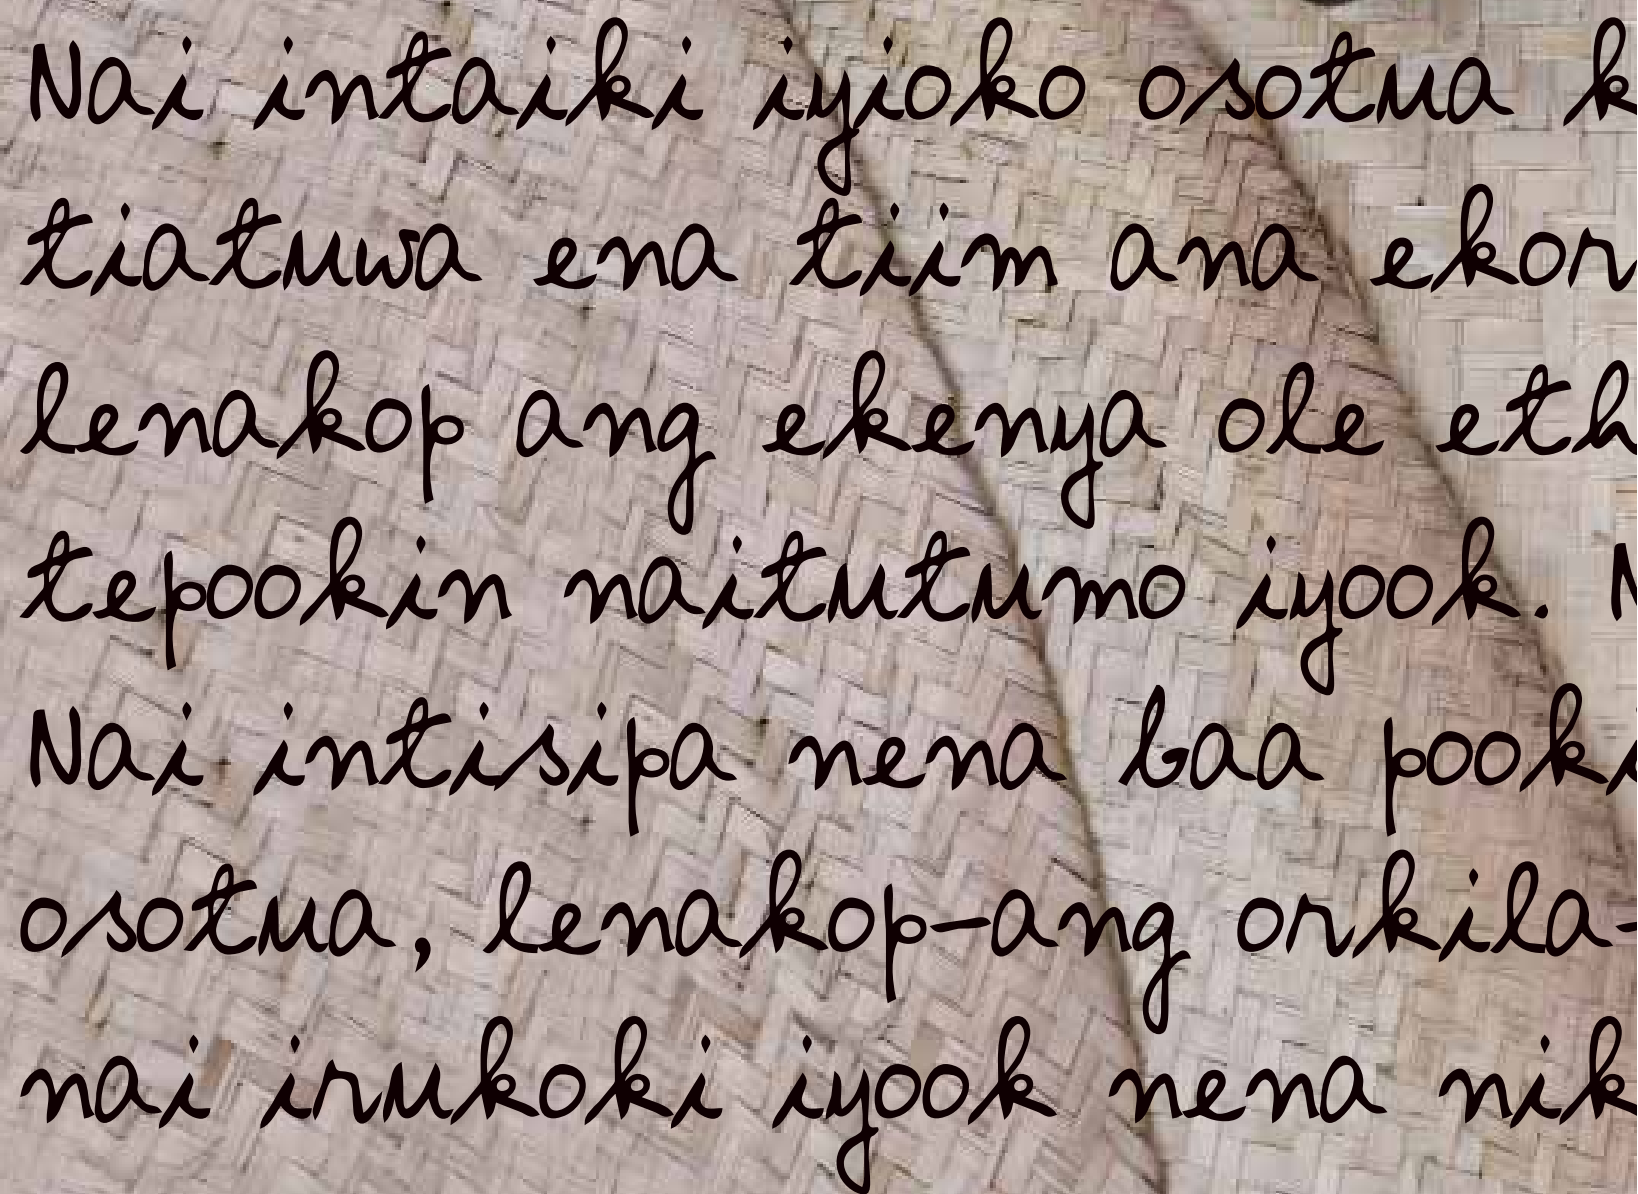 Nai intaiki iyioko osotua
tiatuwa ena tiim ana
lenakop ang ekenya ole
tepookin naitutumo iyook.
Nai intisipa nena baa
osotua, lenakop-ang orkila-
nai irukoki iyook nena